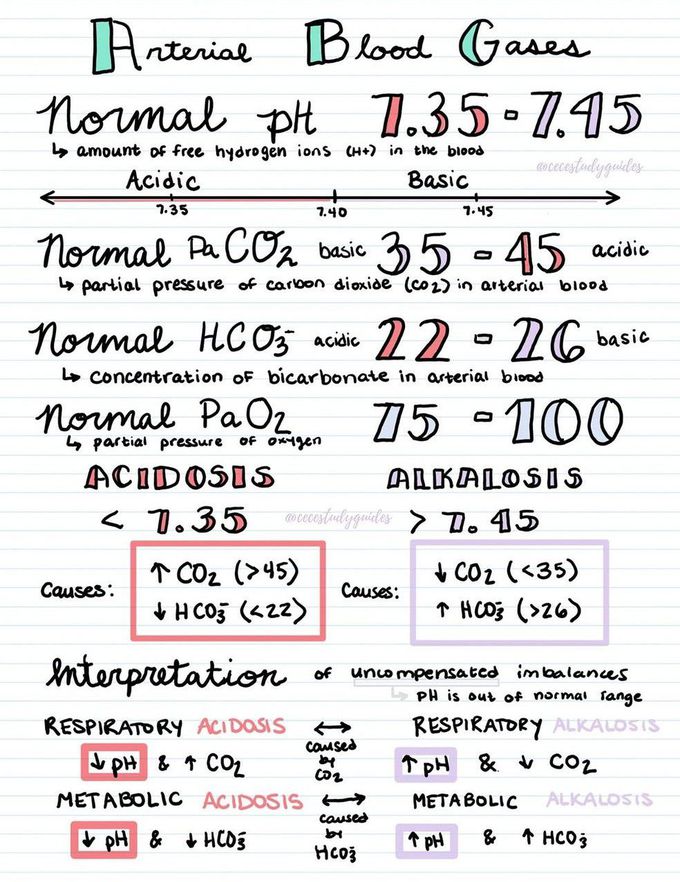 Arterial Blood Gases
Normal pH 7.35 - 7.45
↳ amount of free hydrogen ions (H+) in the blood
@cecestudyguides
Acidic Basic
7.35 7.40 7.45
Normal PaCO2 basic 35 - 45 acidic
↳ partial pressure of carbon dioxide (CO2) in arterial blood
Normal HCO3- acidic 22 - 26 basic
↳ concentration of bicarbonate in arterial blood
Normal PaO2 75 - 100
↳ partial pressure of oxygen
ACIDOSIS ALKALOSIS
< 7.35 @cecestudyguides > 7.45
Causes: ↑ CO2 (>45) Causes: ↓ CO2 (<35)
↓ HCO3- (<22) ↑ HCO3- (>26)
Interpretation of uncompensated imbalances
↳ pH is out of normal range
RESPIRATORY ACIDOSIS ↔ RESPIRATORY ALKALOSIS
caused by CO2
↓ pH & ↑ CO2 ↑ pH & ↓ CO2
METABOLIC ACIDOSIS ↔ METABOLIC ALKALOSIS
caused by HCO3-
↓ pH & ↓ HCO3- ↑ pH & ↑ HCO3-